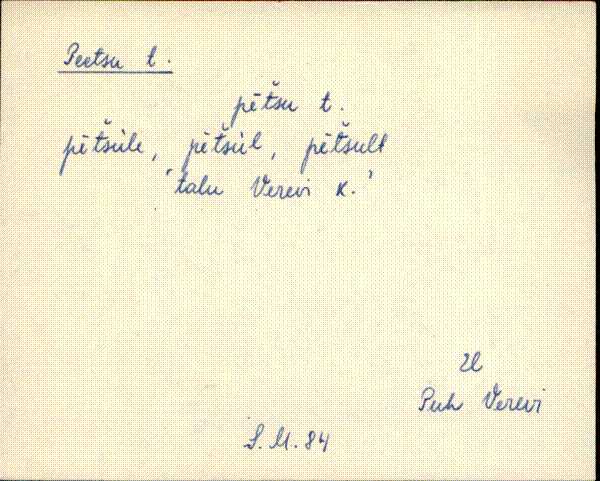 Peetsu t.
pēt̆šu t.
pēt̆šùle, pēt̆šùl, pēt̆šult
'talu Verevi k.'
Puh Verevi
S.M.84